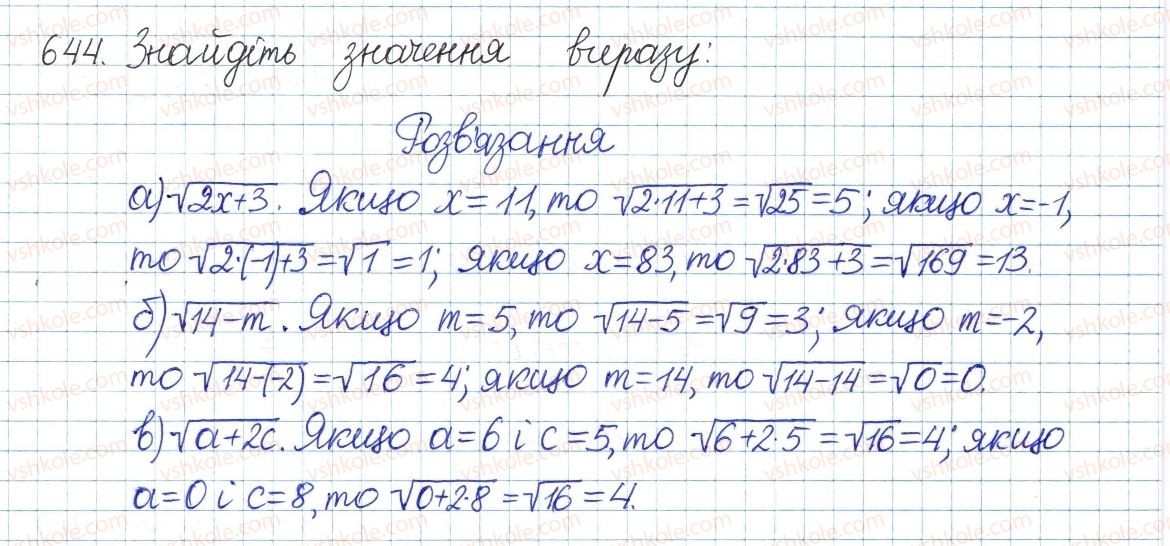 644. Знайдіть значення виразу:
Розв'язання
а) √2x+3. Якщо x=11, то √2·11+3=√25=5; якщо x=-1,
то √2·(-1)+3=√1=1; якщо x=83, то √2·83+3=√169=13.
б) √14-m. Якщо m=5, то √14-5=√9=3; якщо m=-2,
то √14-(-2)=√16=4; якщо m=14, то √14-14=√0=0.
в) √a+2c. Якщо a=6 і c=5, то √6+2·5=√16=4; якщо
a=0 і c=8, то √0+2·8=√16=4.